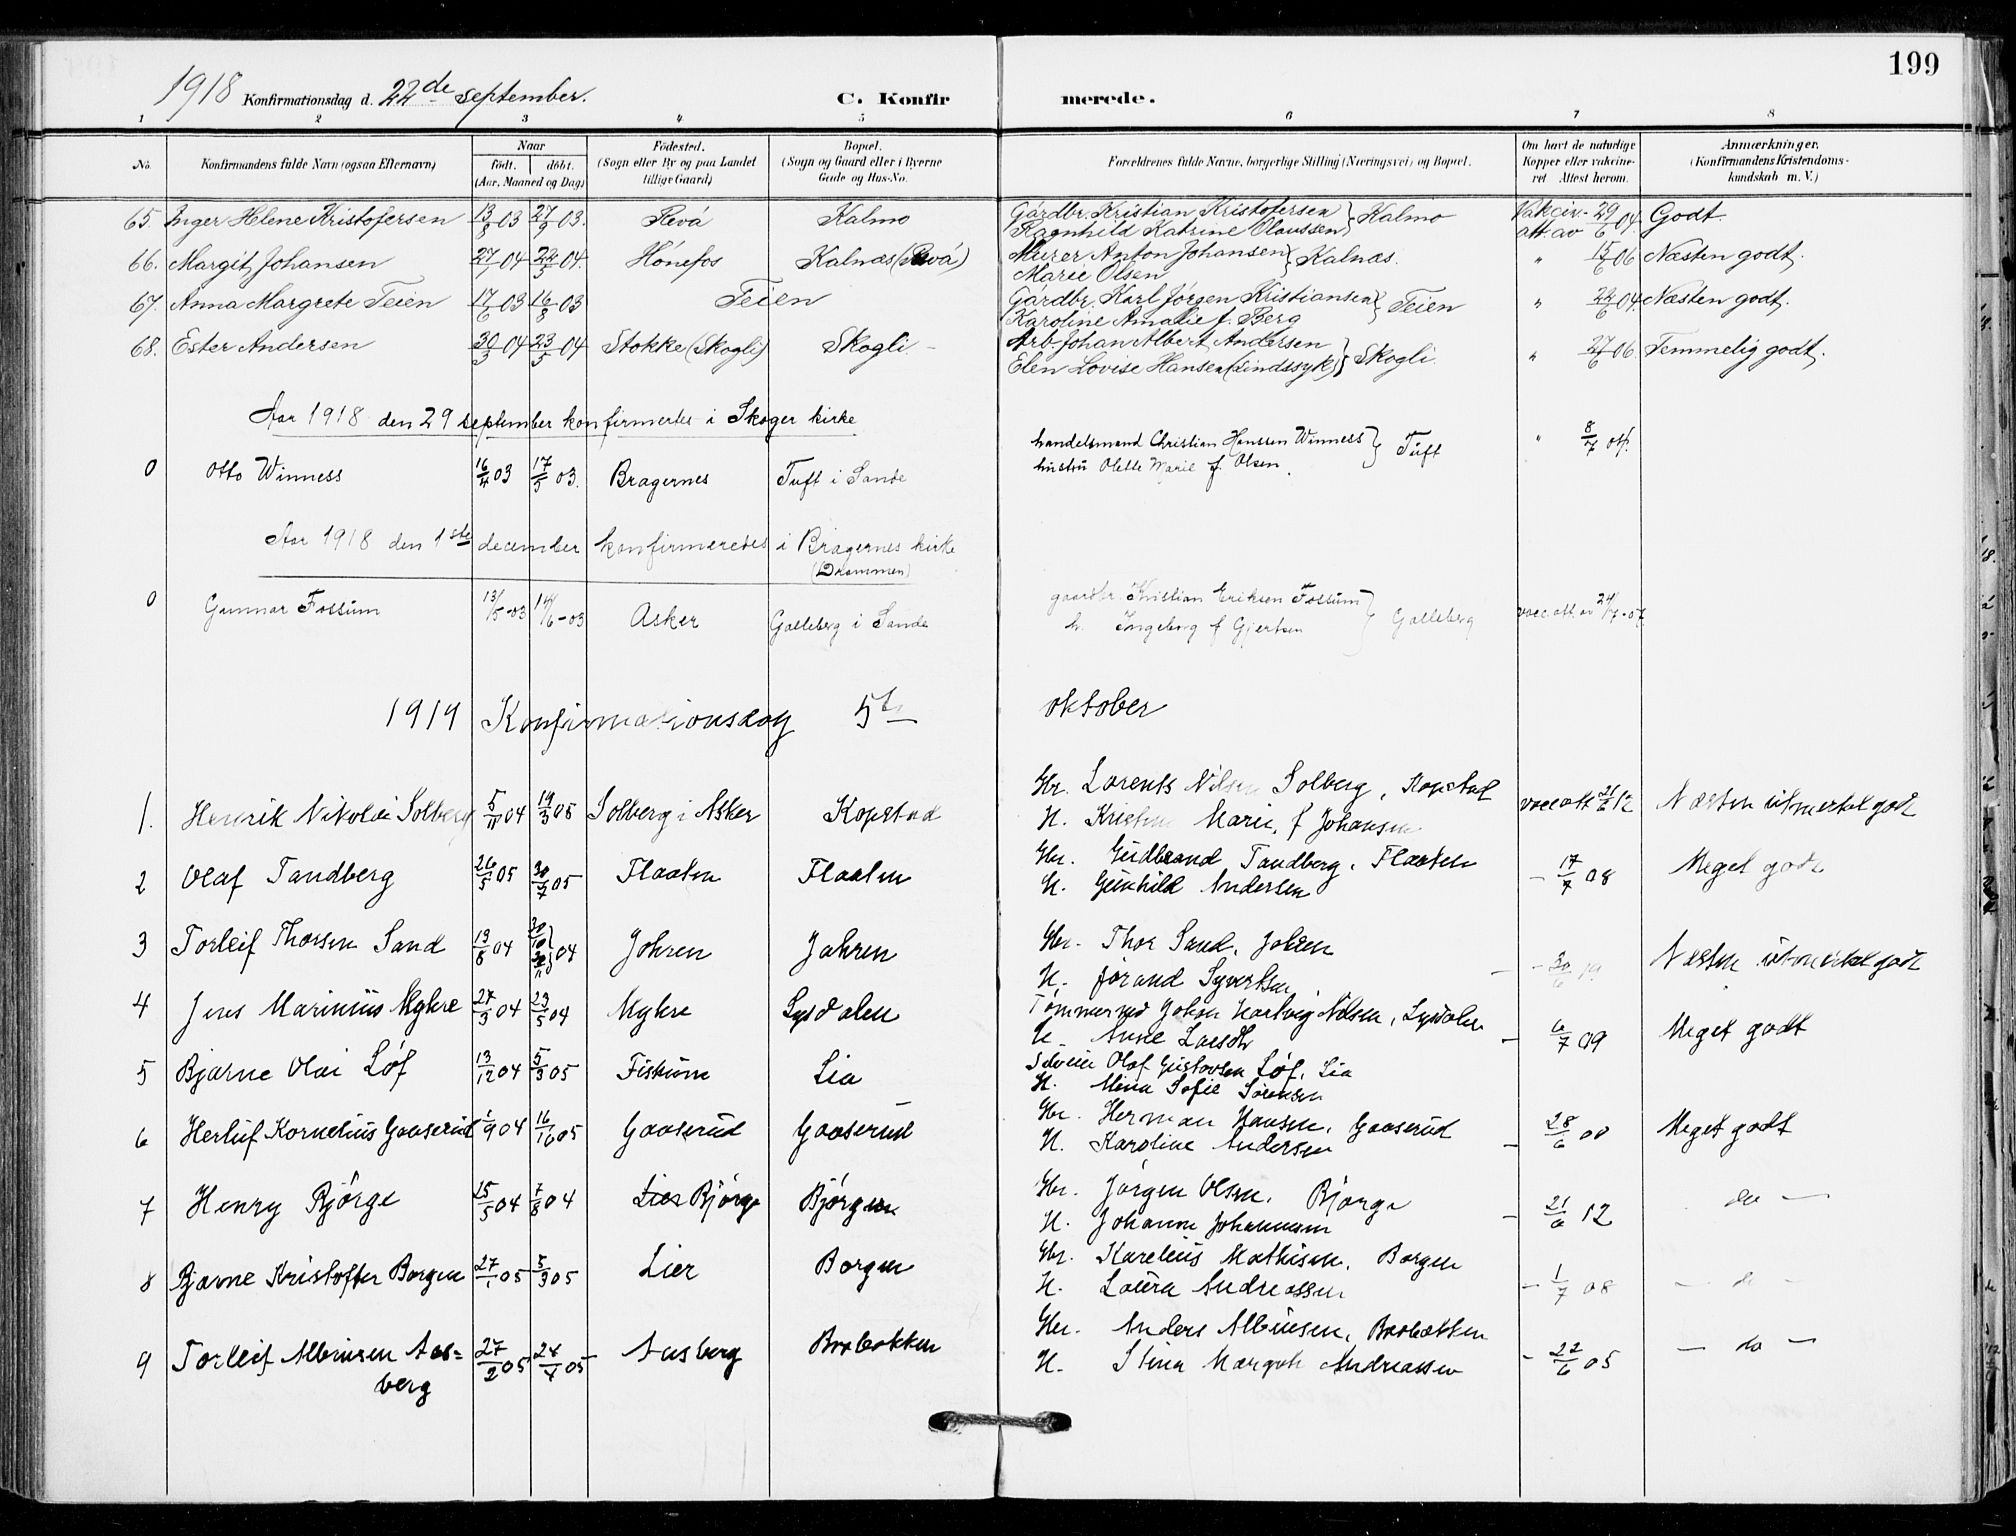 199
1918 Konfirmationsdag d. 22de september. C. Konfirmerede.
1 2 3 4 5 6 7 8
No. Konfirmandens fulde Navn (ogsaa Efternavn) Naar födt. döbt. (Aar, Maaned og Dag) Födested. (Sogn eller By og paa Landet tillige Gaard) Bopæl. (Sogn og Gaard eller i Byerne Gade og Hus-No. Forældrenes fulde Navne, borgerlige Stilling (Næringsvei) og Bopæl. Om havt de naturlige Kopper eller vakcineret. Attest herom. Anmærkninger. (Konfirmandens Kristendomskundskab m. V.)
65. Inger Helene Kristofersen 13/8 03 27/9 03. Revå Kalmo Gårdbr. Kristian Kristofersen } Kalmo Vakcin. 29/6 04. Godt.
Ragnhild Katrine Olaussen att. av
66. Margit Johansen 27/1 04 22/5 04. Hónefos Kalnæs (Revå) Murer Anton Johansen } Kalnæs. " 15/6 06 Næsten godt.
Marie Olsen
67. Anna Margrete Teien 17/6 03 16/8 03 Teien Gårdbr. Karl Jórgen Kristiansen } Teien " 22/6 04. Næsten godt.
Karoline Amalie f. Berg
68. Ester Andersen 30/3 04 23/5 04 Stokke (Skogli) Skogli - Arb. Johan Albert Andersen } Skogli. " 27/6 06 Temmelig godt.
Elen Lovise Hansen (sindssyk)
Aar 1918 den 29 september konfirmertes i Skoger kirke
0 Otto Winness 16/4 03 17/5 03. Bragernes Tuft i Sande handelsmand Christian Hanssen Winness } Tuft " 8/7 04.
hustru Olette Marie f. Olsen
Aar 1918 den 1ste december konfirmeredes i Bragernes kirke
(Drammen)
0 Gunnar Fossum 13/5-03 14/6-03 Asker Galleberg i Sande gaardbr. Kristian Eriksen Fossum } Galleberg vacc. att. av 24/7-07.
h. Ingeborg f Gjertsen
1919 Konfirmationsdag 5te oktober
1. Henrik Nikolai Solberg 5/11 04 19/3 05 Solberg i Asker Kopstad Gbr. Lorents Nilsen Solberg, Kopstad vacc att 21/6 12 Næsten utmerket godt
H. Kristine Marie, f Johansen
2 Olaf Tandberg 26/5 05 30/7 05 Flaaten Flaaten Gbr. Gudbrand Tandberg, Flaaten - 17/7 08 Meget godt
H. Gunhild Andersen
3 Torleif Thorsen Sand 13/8 04 30/10 04 Jahren Jahren Gbr. Thor Sand, Jahren - 30/6 19. Næsten utmerket godt
H. Jørand Syvertsen
4 Jens Marinius Mykre 27/3 04 23/5 04 Mykre Lysdalen Tømmermd Johan Hartvig Nilsen, Lysdalen - 6/7 09 Meget godt
H. Anne Larsdtr
5 Bjarne Olai Løf 13/12 04 5/3 05 Fiskum Lia Olaf Gustavsen Løf, Lia
H. Mina Sofie Sørensen
6 Herluf Kornelius Gaaserud 1/9 04 16/10 05 Gaaserud Gaaserud Gbr. Herman Hansen, Gaaserud - 28/6 00 Meget godt
H. Karoline Andersen
7 Henry Bjørge 15/5 04 7/8 04 Lier Bjørge Bjørgen Gbr. Jørgen Olsen, Bjørge - 21/6 12 do -
H. Johanne Johannessen
8 Bjarne Kristoffer Borgen 27/1 05 5/3 05 Lier Borgen Gbr. Karelius Mathisen, Borgen - 1/7 08 - do -
H. Laura Andreassen
9 Torleif Albinsen Aas= 27/2 05 24/4 05 Aasberg Brobakken Gbr. Anders Albinsen, Brobakken - 22/6 05 - do -
berg H. Stina Margret Andreassen